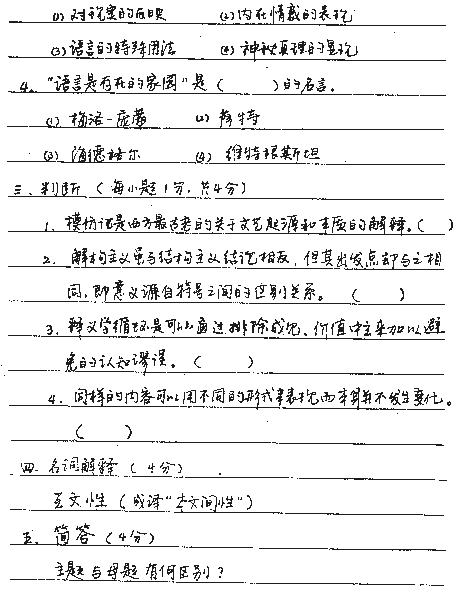 (1) 对现实的反映 (2) 内在情感的表现
(3) 语言的特殊用法 (4) 神秘真理的显现
4. "语言是存在的家园"是（ ）的名言。
(1) 梅洛-庞蒂 (2) 弗
(3) 海德格尔 (4) 维特根斯坦
三. 判断（每小题1分, 共4分）
1. 模仿说是西方最古老的关于文艺起源和本质的解释。（ ）
2. 解构主义虽与结构主义结论相反, 但其出发点却与之相
同, 即意义源自符号之间的区别关系。（ ）
3. 释义学循环是可以通过排除成见、价值中立来加以避
免的认知谬误。（ ）
4. 同样的内容可以用不同的形式来表现而本身并不发生变化。
（ ）
四. 名词解释（4分）
互文性（或译"本文间性"）
五. 简答（4分）
主题与母题有何区别？